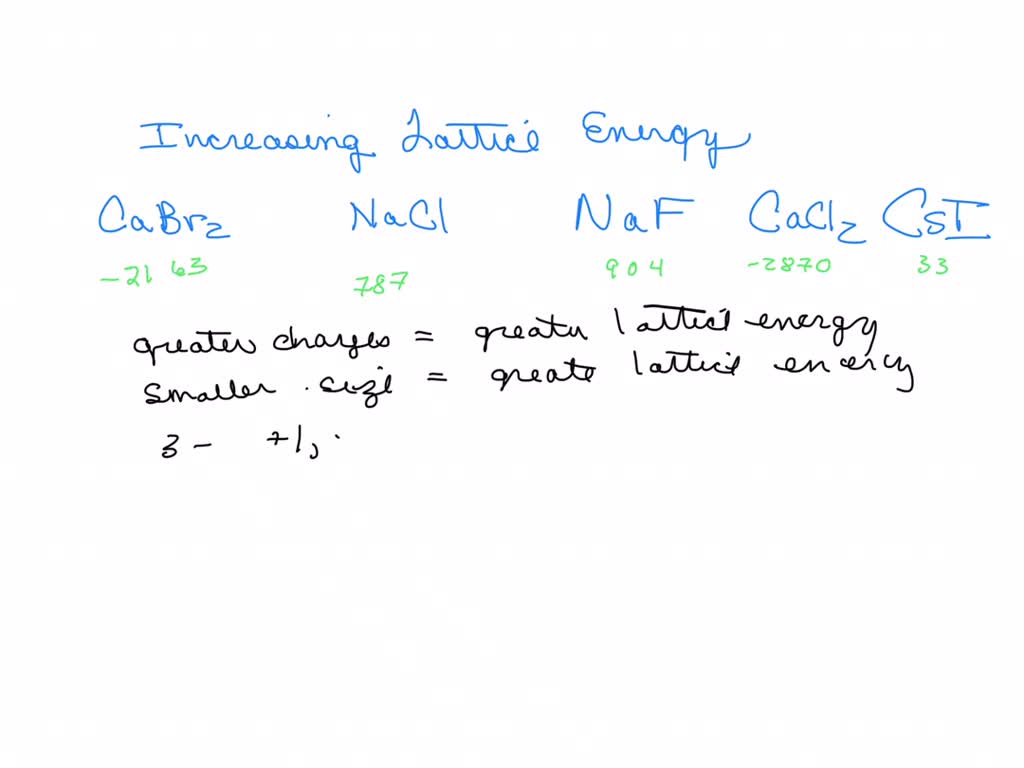 Increasing Lattice Energy
CaBr2 NaCl NaF CaCl2 CsI
-2163 787 904 -2870 33
greater charges = greater lattice energy
smaller size = greate lattice energy
3- +1, .